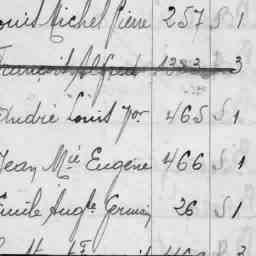 ouis Michel Pierre 257 S 1
François Alfred 1232 3
André Louis Nor 465 S 1
Jean Mie Eugène 466 S 1
Emile Augte Germain 26 S 1